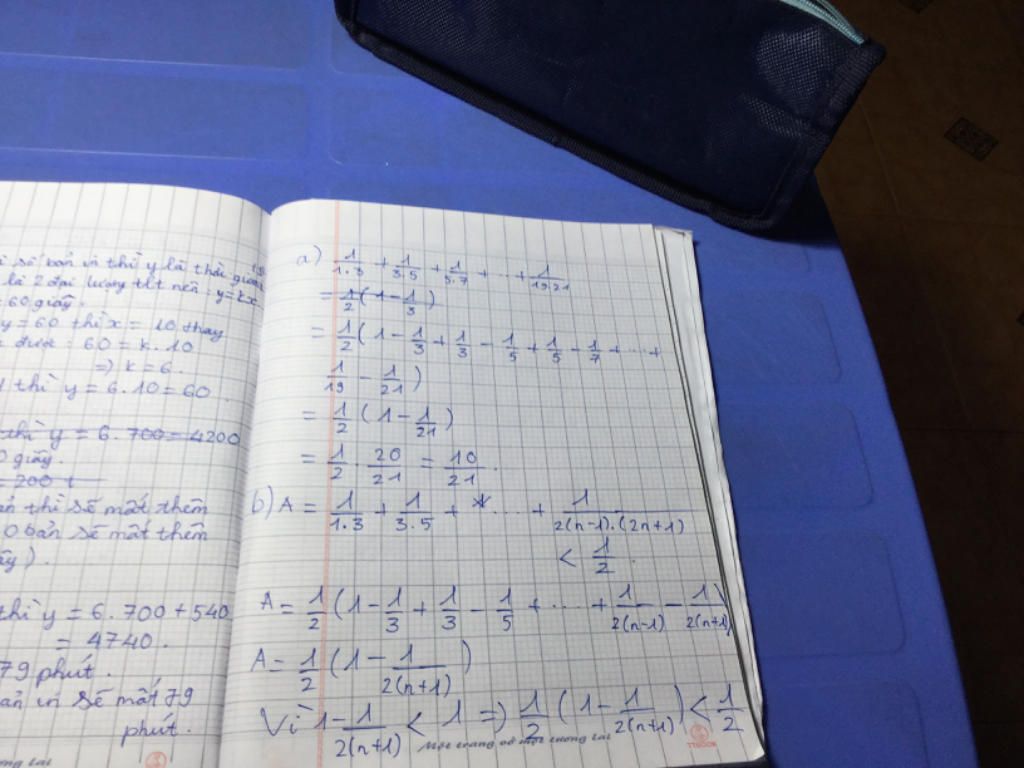 số bản in thì y là thời gian
là 2 đại lượng tlt nên: y = kx
= 60 giây.
y = 60 thì x = 10 thay
được: 60 = k. 10
=> k = 6.
thì y = 6. 10 = 60
thì y = 6. 700 = 4200
0 giây.
= 200
thì sẽ mất thêm
0 bản sẽ mất thêm
thì y = 6. 700 + 540
= 4740.
79 phút.
in sẽ mất 79
phút.
a) 1/1.3 + 1/3.5 + 1/5.7 + ... + 1/19.21
= 1/2 (1 - 1/3)
= 1/2 (1 - 1/3 + 1/3 - 1/5 + 1/5 - 1/7 + ... +
1/19 - 1/21)
= 1/2 (1 - 1/21)
= 1/2 . 20/21 = 10/21.
b) A = 1/1.3 + 1/3.5 + ... + 1/2(n-1).(2n+1)
< 1/2.
A = 1/2 (1 - 1/3 + 1/3 - 1/5 + ... + 1/2(n-1) - 1/2(n+1))
A = 1/2 (1 - 1/2(n+1))
Vì 1 - 1/2(n+1) < 1 => 1/2 (1 - 1/2(n+1)) < 1/2
Một trang vở một tương lai
TTBOOK